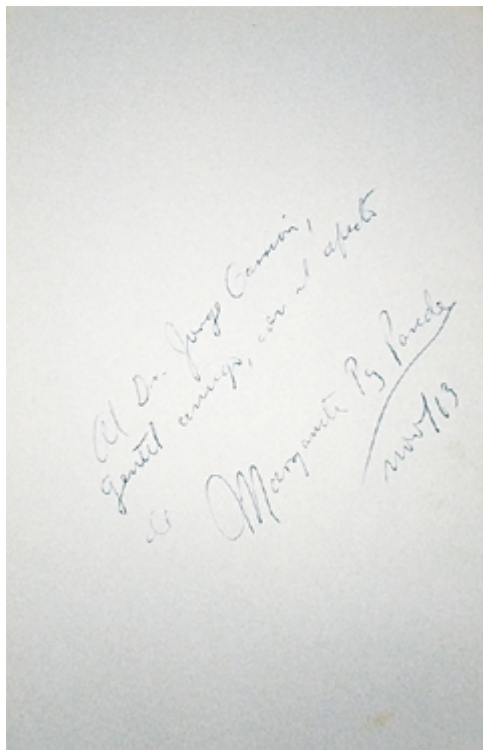 Al Dr. Jorge Carrión,
gentil amigo, con el afecto
de Margarita Paz Paredes
nov/63